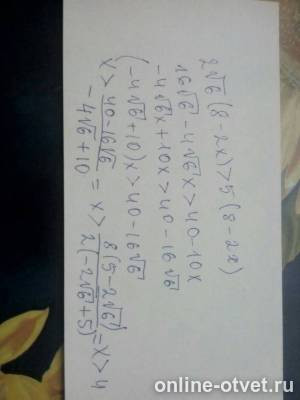 2√6 (8-2x)>5(8-2x)
16√6 -4√6x>40-10x
-4√6x+10x>40-16√6
(-4√6+10)x>40-16√6
x> (40-16√6)/(-4√6+10) = x> 8(5-2√6)/2(-2√6+5) = x>4
online-otvet.ru